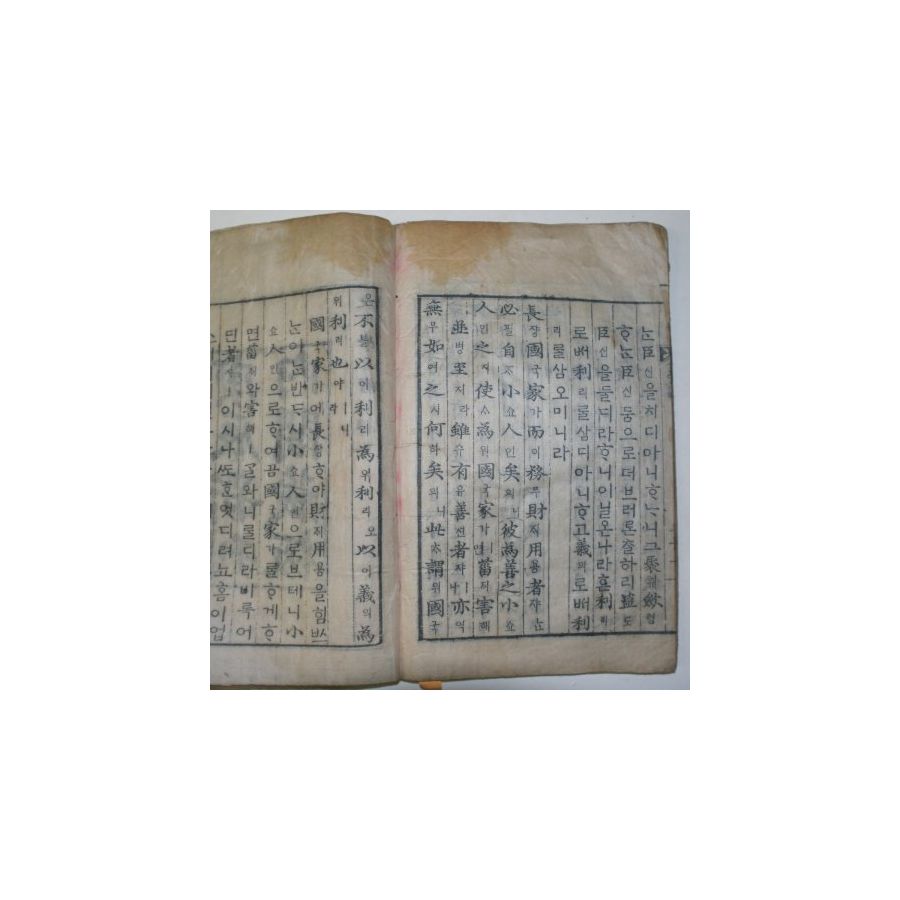 ᄂᆞᆫ臣신을치디아니ᄒᆞᄂᆞ니그聚취斂렴
ᄒᆞᄂᆞᆫ臣신뭄으로더브러론출하리盜도
臣신을둘디라ᄒᆞ니이닐온나라흔利리
로ᄡᅥ利리ᄅᆞᆯ삼디아니ᄒᆞ고義의로ᄡᅥ利
리ᄅᆞᆯ삼오미니라
長댱國국家가而이務무財ᄌᆡ用용者쟈ᄂᆞᆫ
必필自ᄌᆞ小쇼人인矣의니彼為善之小쇼
人인之지使ᄉᆞ為위國국家가ㅣ면菑ᄌᆡ害해
並병至지라雖슈有유善션者쟈ㅣ나亦역
無무如여之지何하矣의니此ᄎᆞ謂위國국
은不블以이利리為위利리오以이義의為
위利리也야ㅣ니라
國국家가에長댱ᄒᆞ야財ᄌᆡ用용을힘ᄡᅳ
ᄂᆞᆫ이ᄂᆞᆫ반ᄃᆞ시小쇼人인으로브테니小
쇼人인으로ᄒᆞ여곰國국家가ᄅᆞᆯᄒᆞ게ᄒᆞ
면菑ᄌᆡ와害해ㅣᄀᆞᆯ와니ᄅᆞᆯ디라비록어
딘者쟈ㅣ이시나ᄯᅩᄒᆞᆫ엇디려뇨홈이업